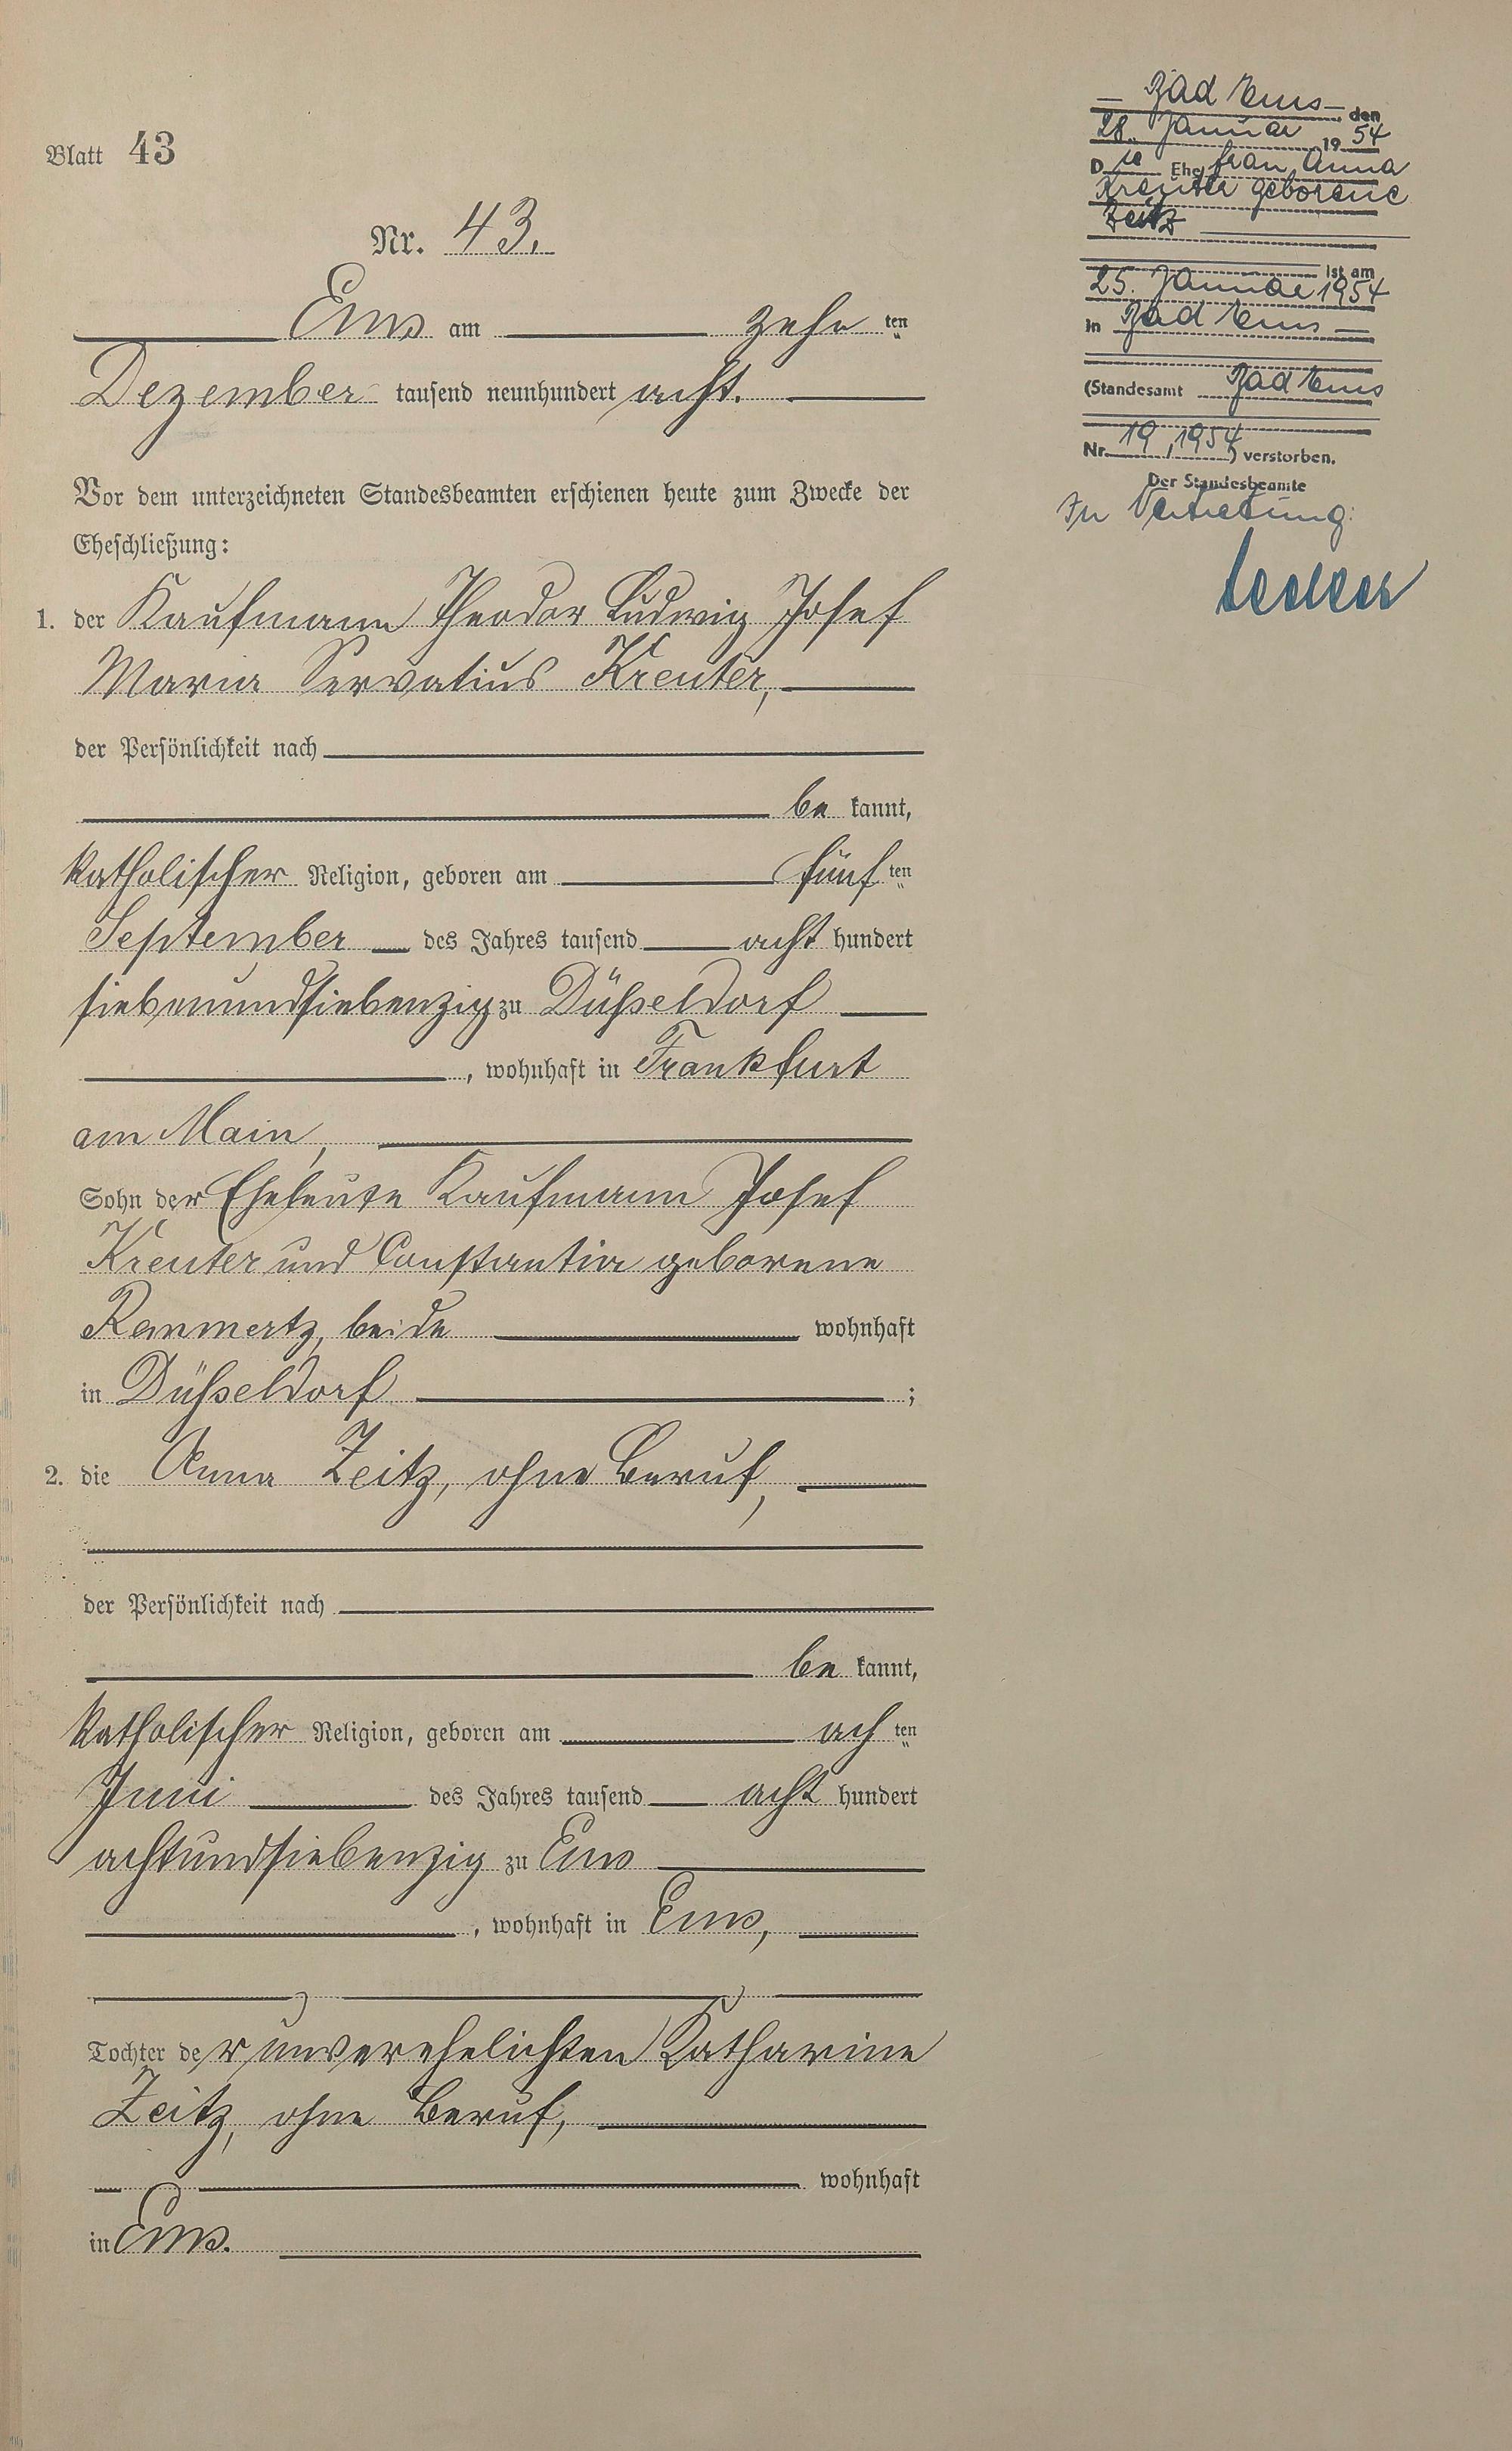 Blatt 43
Nr. 43.
Ems am zehnten
Dezember tausend neunhundert acht.
Vor dem unterzeichneten Standesbeamten erschienen heute zum Zwecke der
Eheschließung:
1. der Kaufmann Theodor Ludwig Josef
Maria Servatius Kreuter,
der Persönlichkeit nach
be kannt,
katholischer Religion, geboren am fünften
September des Jahres tausend acht hundert
siebenundsiebenzig zu Düsseldorf
, wohnhaft in Frankfurt
am Main,
Sohn der Eheleute Kaufmann Josef
Kreuter und Constantia geborene
Remmertz, beide wohnhaft
in Düsseldorf ;
2. die Anna Zeitz, ohne Beruf,
der Persönlichkeit nach
be kannt,
katholischer Religion, geboren am achten
Juni des Jahres tausend acht hundert
achtundsiebenzig zu Ems
, wohnhaft in Ems,
Tochter der unverehelichten Katharine
Zeitz, ohne Beruf,
wohnhaft
in Ems.
Bad Ems den
28. Januar 1954
Die Ehefrau Anna
Kreuter geborene
Zeitz
ist am
25. Januar 1954
in Bad Ems
(Standesamt Bad Ems
Nr. 19, 1954) verstorben.
Der Standesbeamte
In Vertretung: